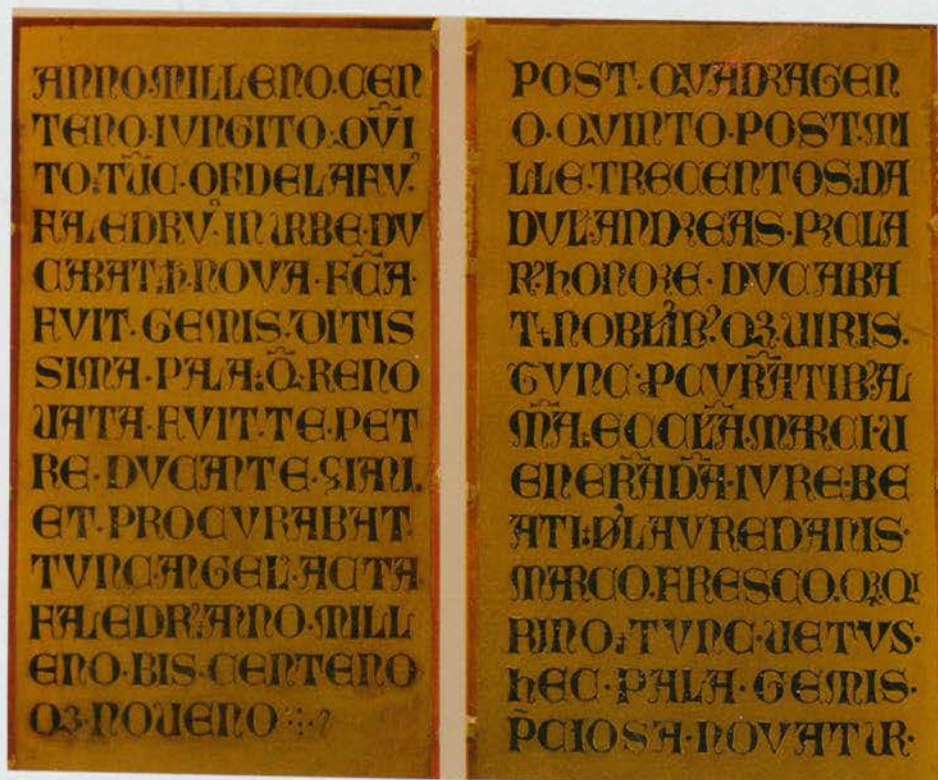 ANNO·MILLENO·CEN
TENO·IVNGITO:QVĪ
TO:TŪC·ORDELAFV'·
FALEDRVˢ·IN URBE·DV
CABAT:H·NOVA·FCĀ·
FVIT·GEMIS:DITIS
SIMA·PALA:Q̄·RENO
UATA·FVIT·TE·PET
RE·DVCANTE·ZIANI·
ET·PROCVRABAT·
TVNC·ANGEL'·ACTA
FALEDR'·ANNO·MILL
ENO·BIS·CENTENO
Qꝫ·NOUENO
POST·QVADRAGEN
O·QVINTO·POST·MI
LLE·TRECENTOS:DA
DVL'·ANDREAS·PCLA
R'·HONORE·DVCABA
T:NOBLIB'·Qꝫ·UIRIS·
TVNC·PCVRĀTIB'·AL
MĀ:ECCLĀ·MARCI·U
ENERĀDĀ·IVRE·BE
ATI:D'LAVREDANIS·
MARCO·FRESCO·Qꝫ·QI
RINO:TVNC·UETVS·
HEC·PALA·GEMIS·
P̄CIOSA·NOVATUR·